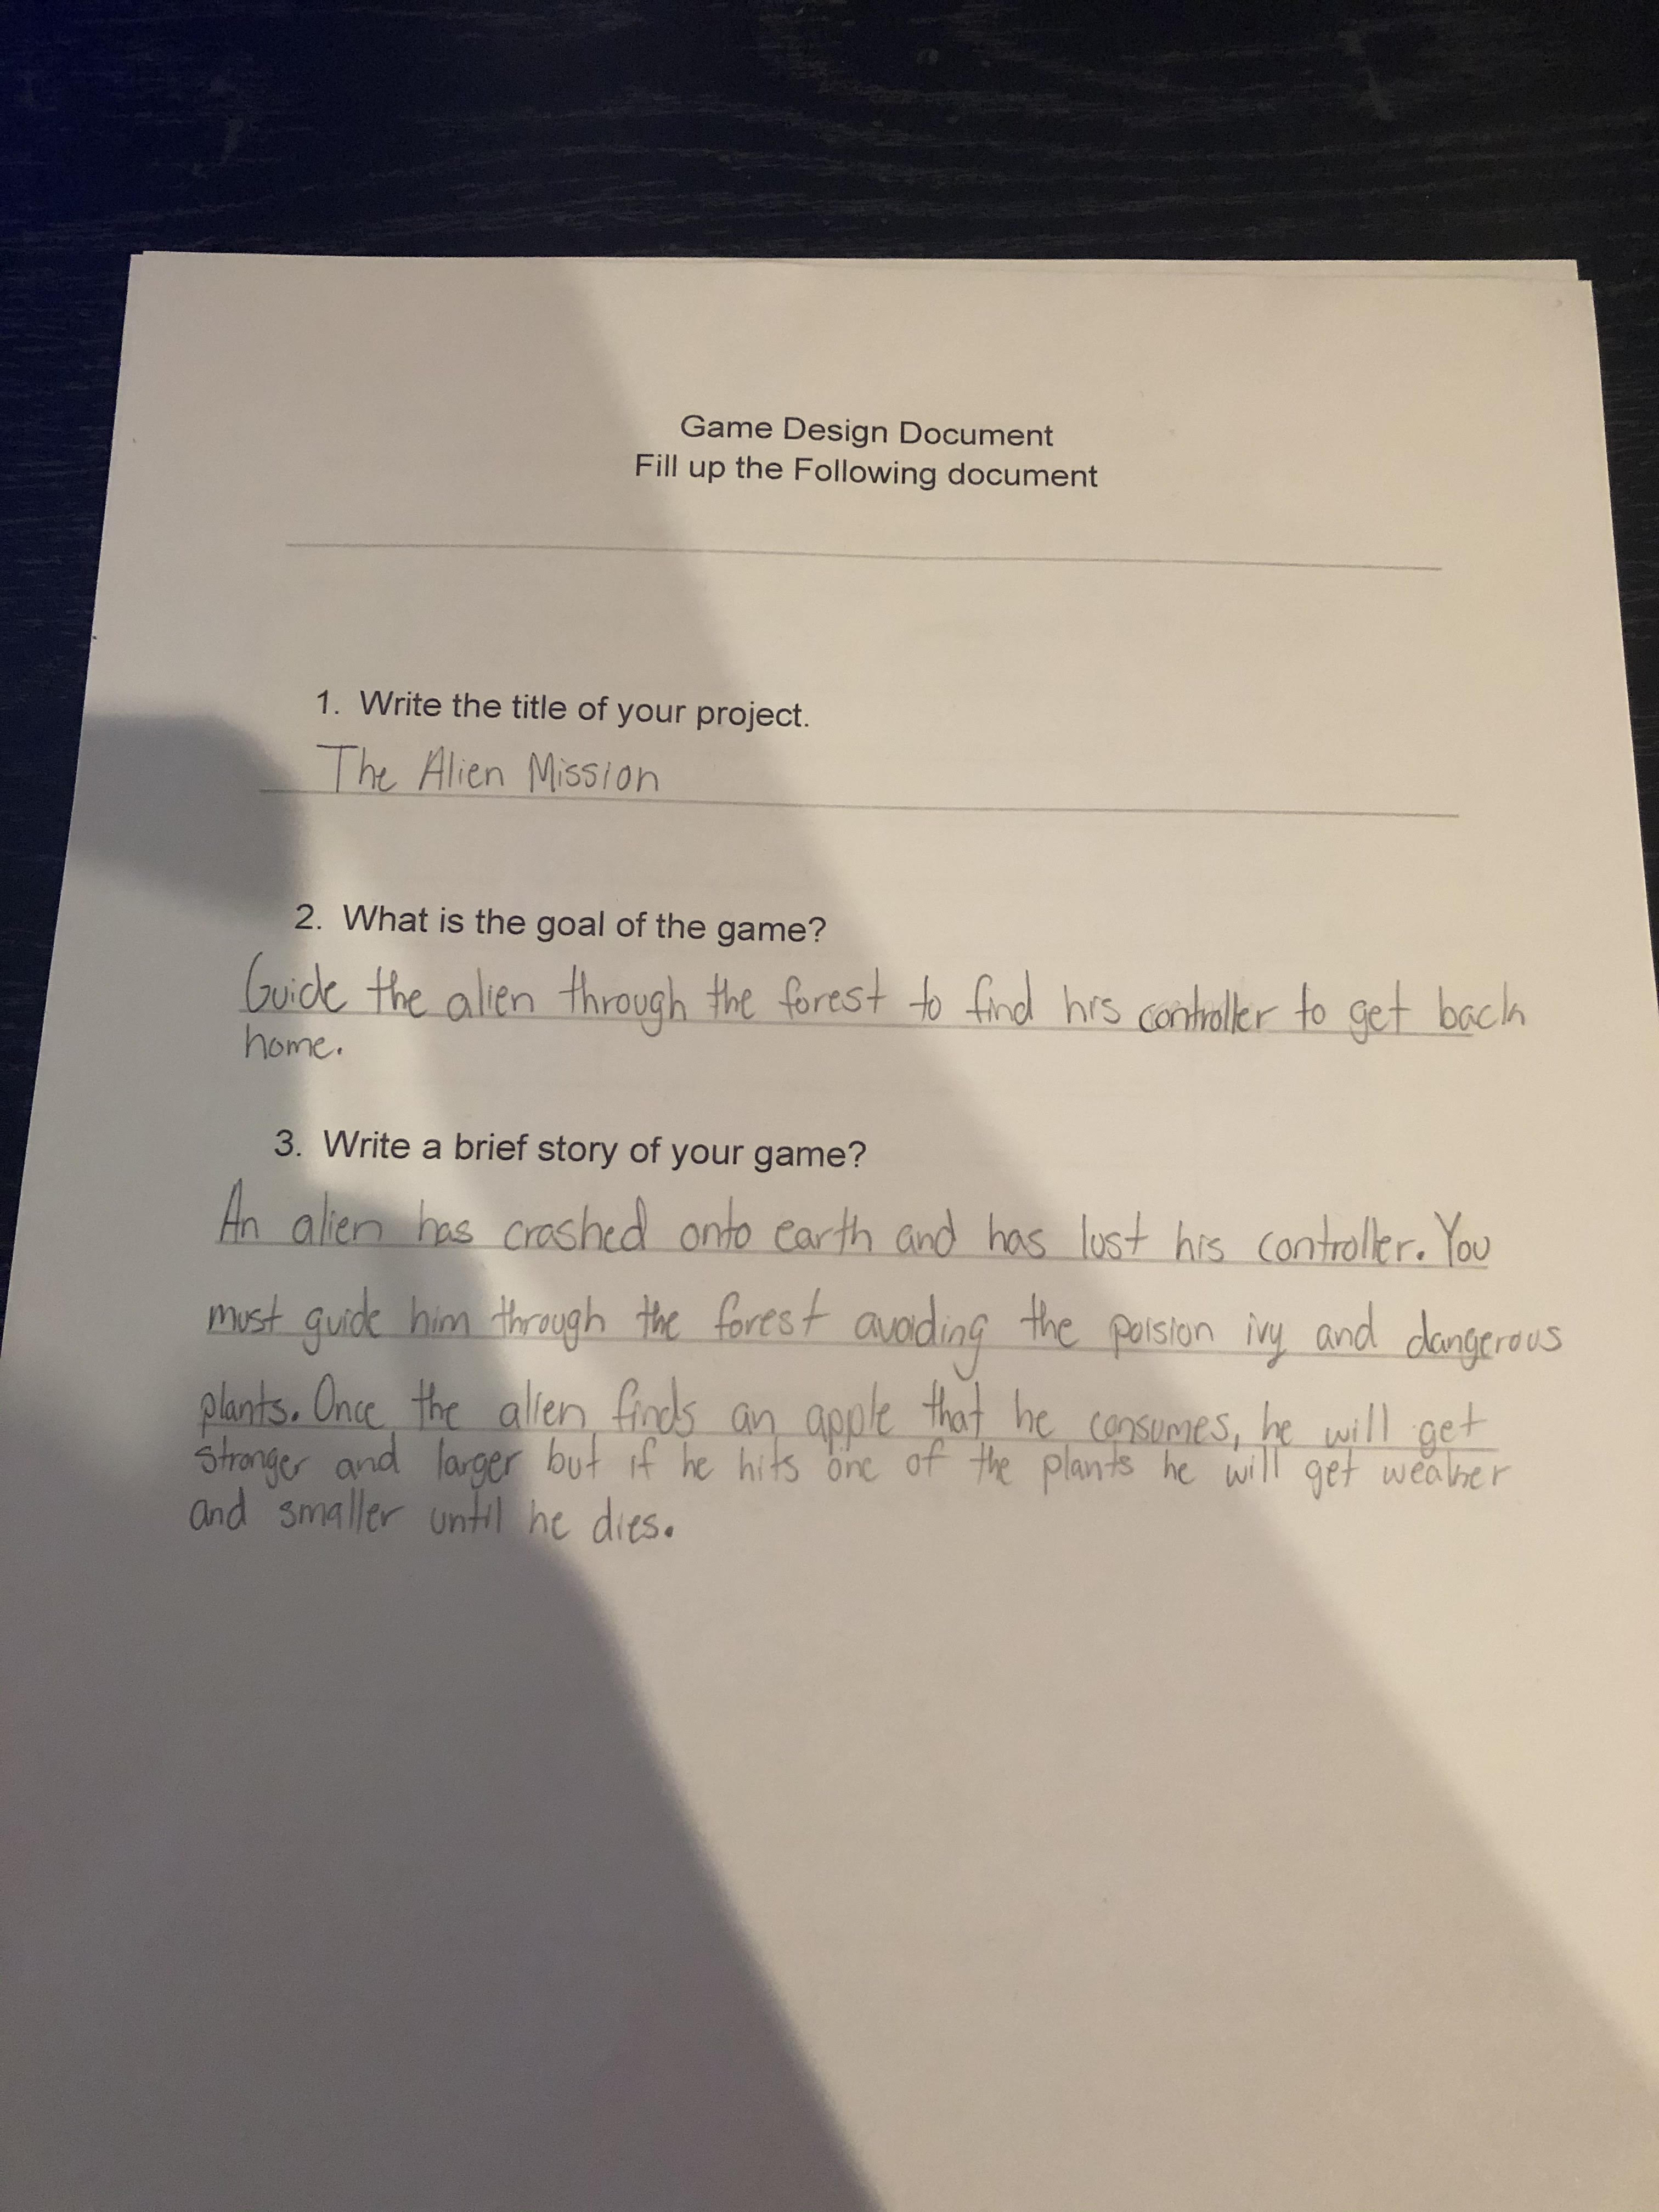 Game Design Document
Fill up the Following document
1. Write the title of your project.
The Alien Mission
2. What is the goal of the game?
Guide the alien through the forest to find his controller to get back
home.
3. Write a brief story of your game?
An alien has crashed onto earth and has lost his controller. You
must guide him through the forest avoiding the poision ivy and dangerous
plants. Once the alien finds an apple that he consumes, he will get
stronger and larger but if he hits one of the plants he will get weaker
and smaller until he dies.